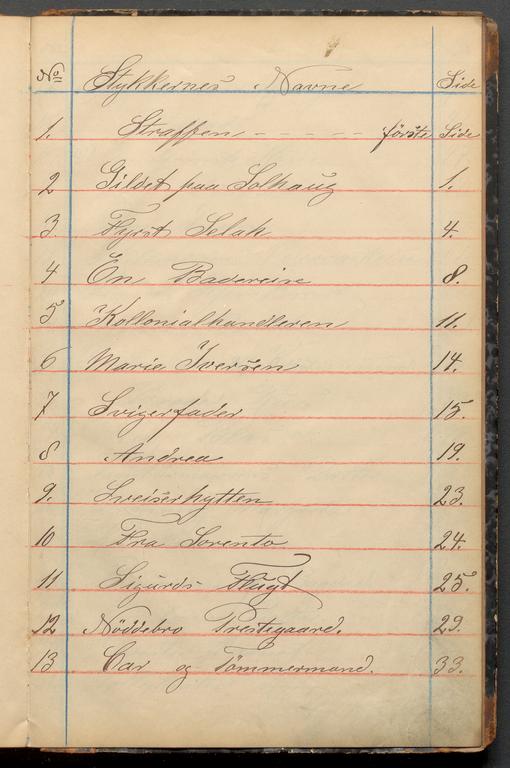 No Stykkernes Navne Side
1. Straffen - - - - - förste Side
2 Gildet paa Solhaug 1.
3. Fyrst Selak 4.
4 En Badereise 8.
5 Kollonialhandleren 11.
6 Maria Iversen 14.
7 Svigerfader 15.
8 Andrea 19.
9. Sveiserhytten 23.
10 Fra Sorento 24.
11 Sigurds Flugt 25.
12 Nöddebro Prestegaard. 29.
13 Car og Tömmermand. 33.